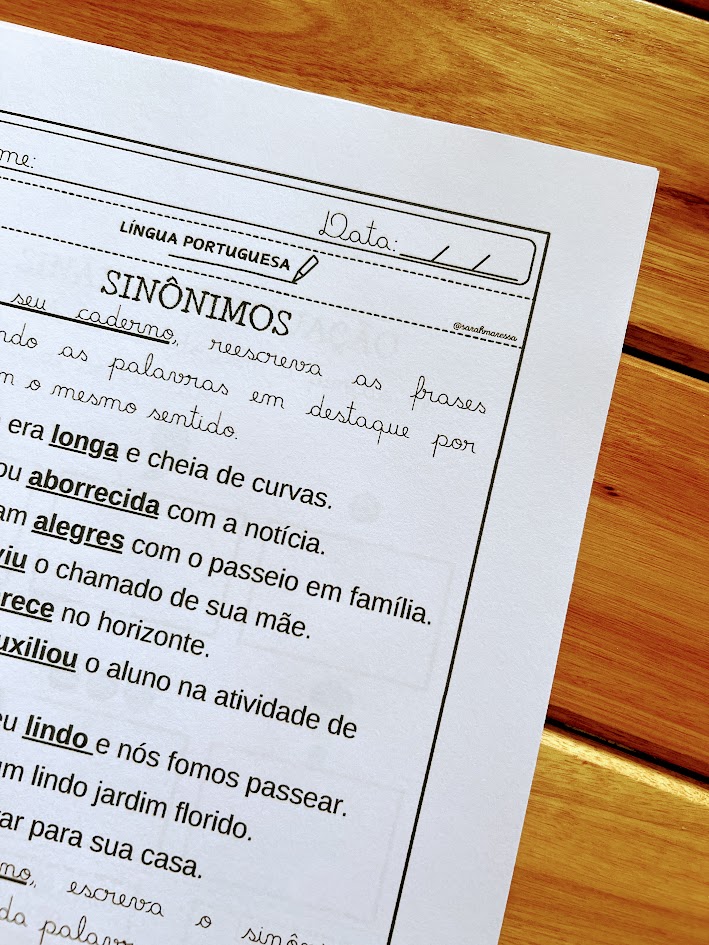 me:
Data: __/__/__
LÍNGUA PORTUGUESA
SINÔNIMOS
@sarahmaressa
seu caderno, reescreva as frases
ndo as palavras em destaque por
m o mesmo sentido.
era longa e cheia de curvas.
ou aborrecida com a notícia.
am alegres com o passeio em família.
viu o chamado de sua mãe.
rece no horizonte.
uxiliou o aluno na atividade de
eu lindo e nós fomos passear.
um lindo jardim florido.
ar para sua casa.
no, escreva o sinôni
da palavr